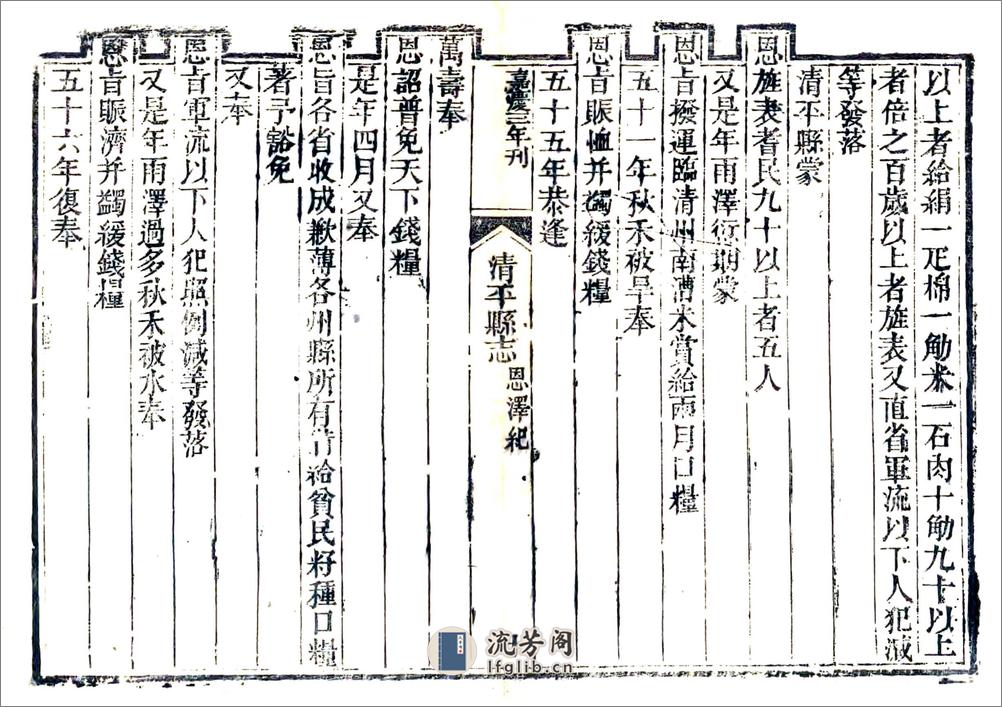 以上者給絹一疋棉一觔米一石肉十觔九十以上
者倍之百歲以上者旌表又直省軍流以下人犯減
等發落
清平縣蒙
恩旌表者民九十以上者五人
又是年雨澤衍期蒙
恩旨撥運臨清州南漕米賞給兩月口糧
五十一年秋禾被旱奉
恩旨賑恤并蠲緩錢糧
五十五年恭逢
嘉慶三年刊
清平縣志 恩澤紀
萬壽奉
恩詔普免天下錢糧
是年四月又奉
恩旨各省收成歉薄各州縣所有借給貧民籽種口糧
著予豁免
又奉
恩旨軍流以下人犯照例減等發落
又是年雨澤過多秋禾被水奉
恩旨賑濟并蠲緩錢糧
五十六年復奉
流芳阁
lfglib.cn